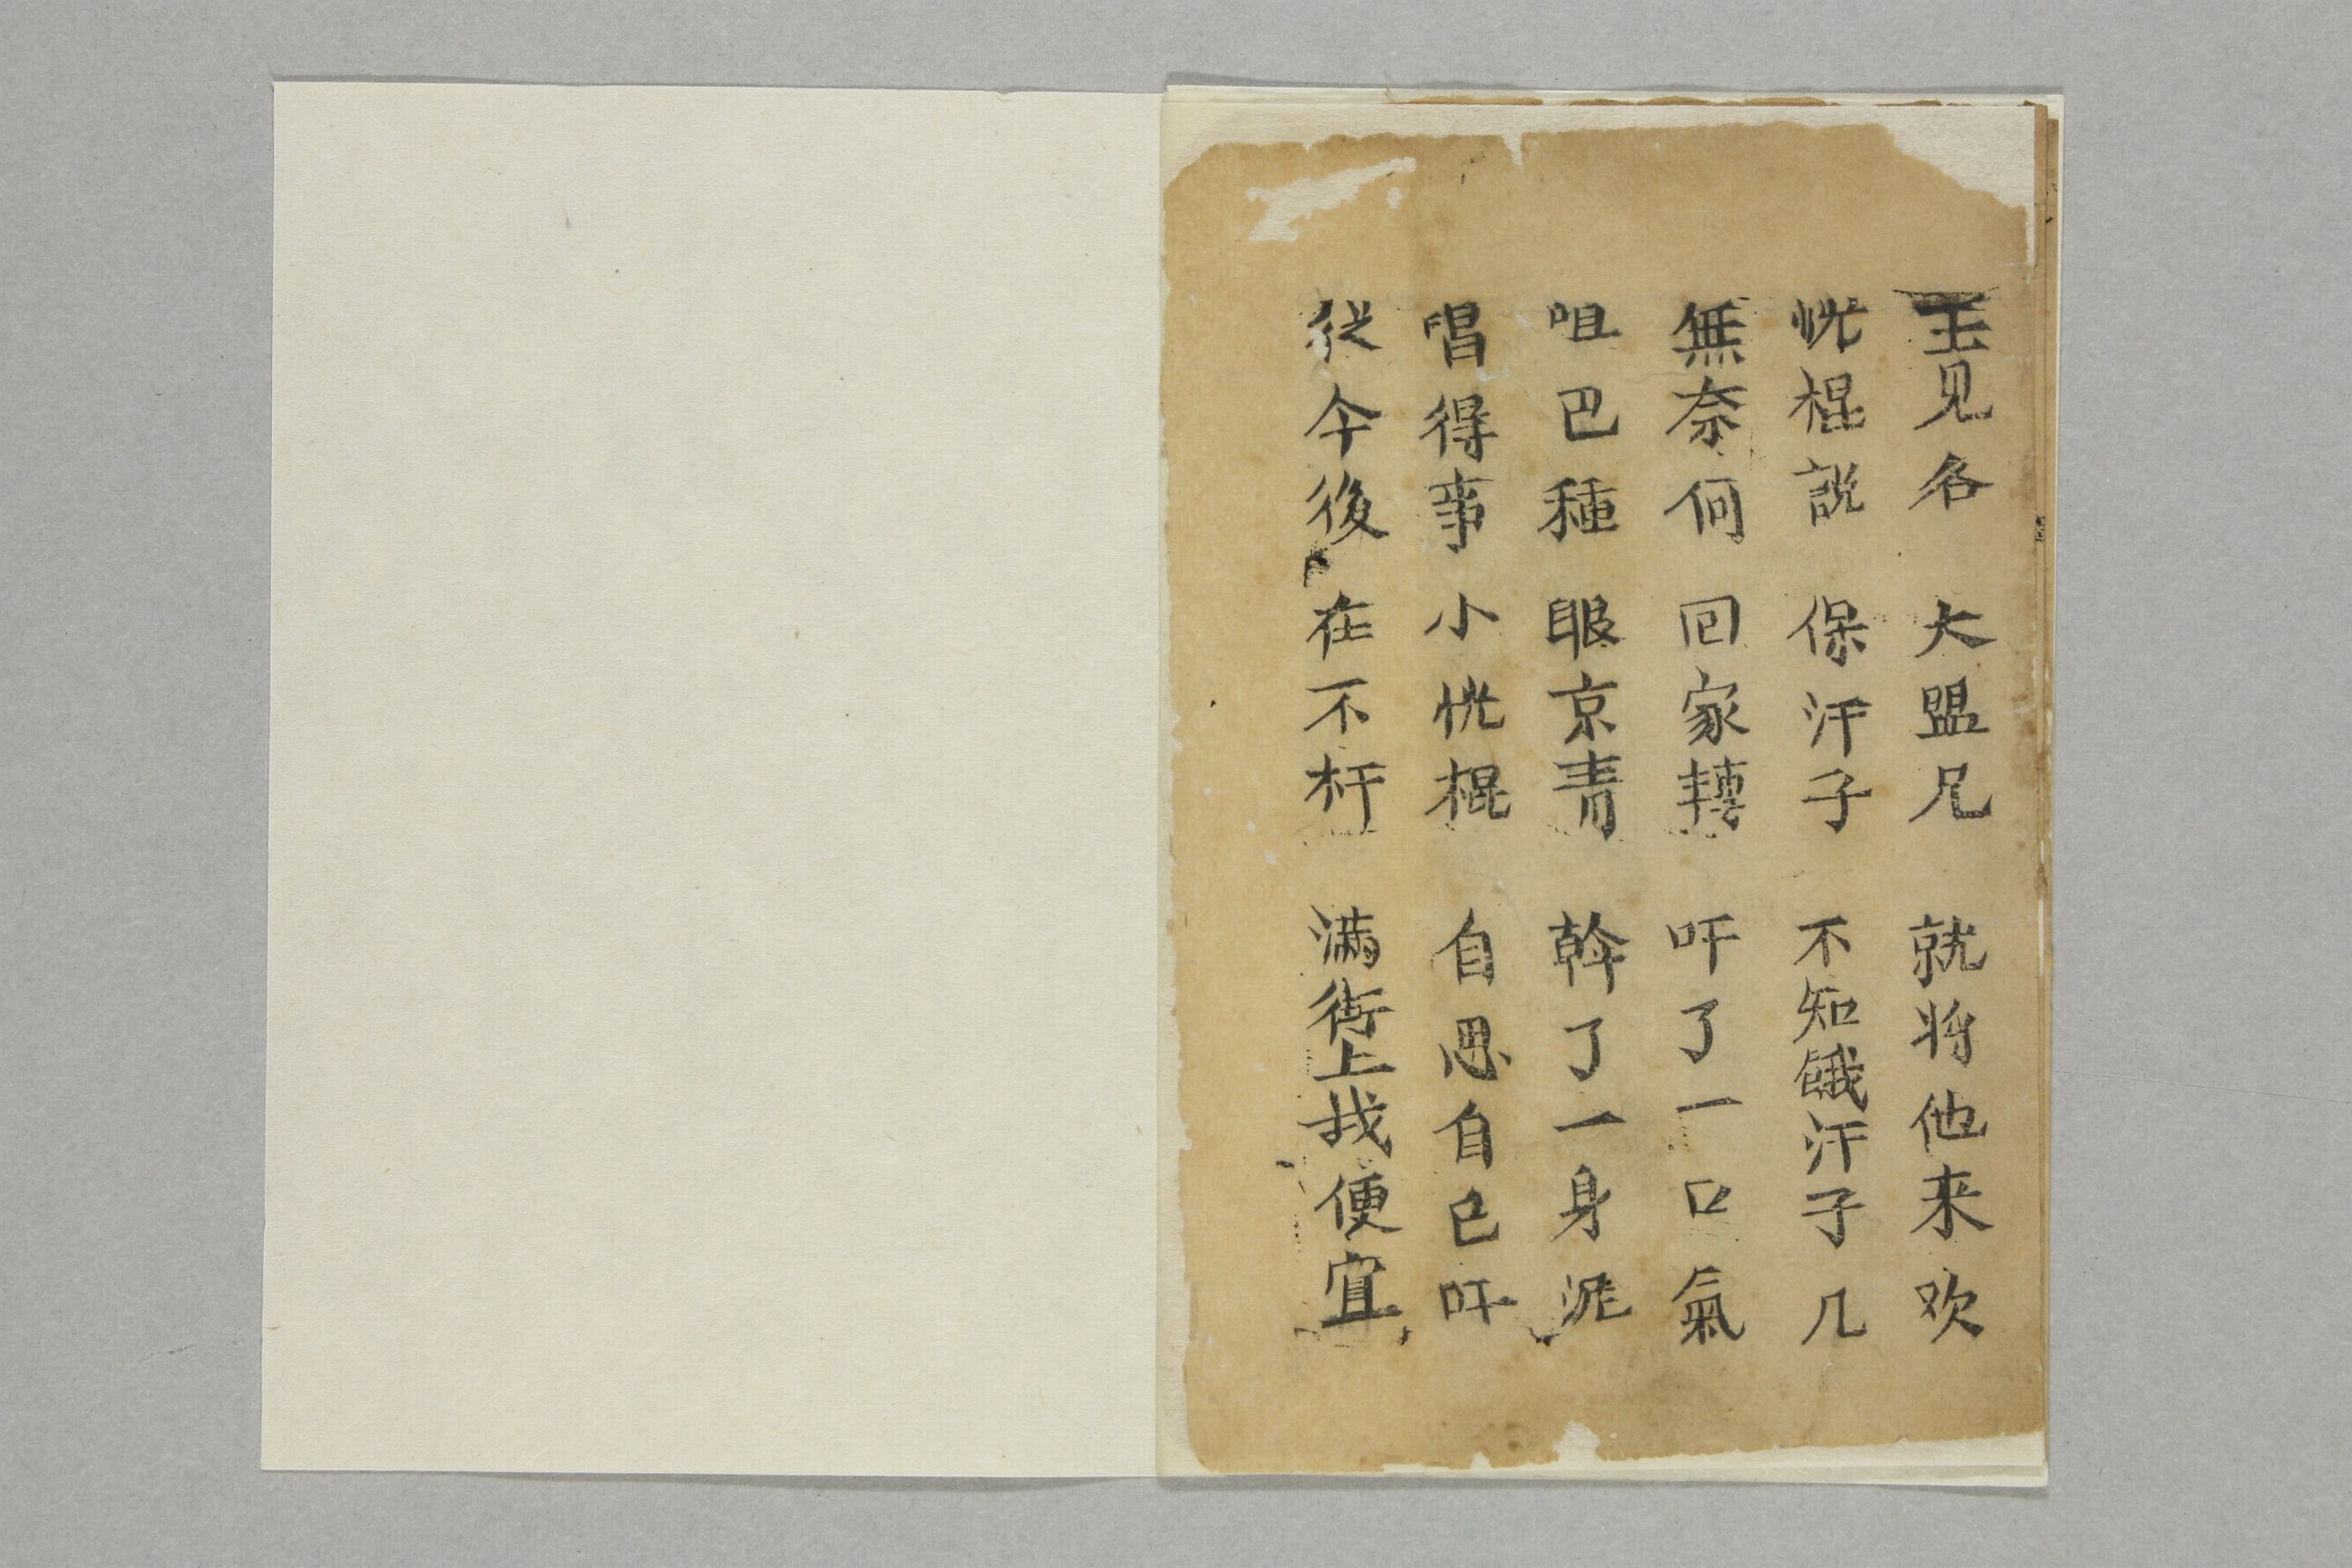 王见各 大盟兄 就将他来欢
恍棍説 保汗子 不知餓汗子几
無奈何 回家轉 吁了一口氣
咀巴種 眼京青 幹了一身泥
唱得事 小恍棍 自思自己吁
从今後 在不杆 满街上找便宜